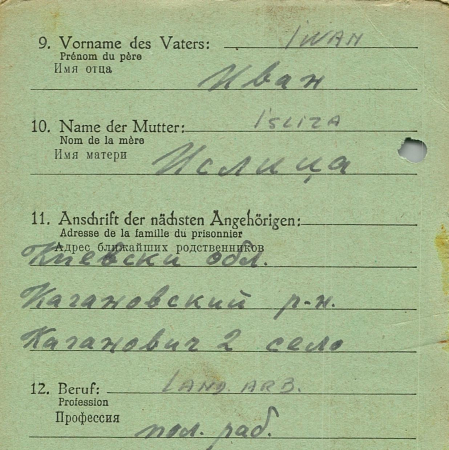 9. Vorname des Vaters: IWAN
Prénom du père
Имя отца
Иван
10. Name der Mutter: ISLIZA
Nom de la mère
Имя матери
Ислица
11. Anschrift der nächsten Angehörigen:
Adresse de la famille du prisonnier
Адрес ближайших родственников
Киевски обл.
Кагановский р-н.
Каганович 2 село
12. Beruf: LAND. ARB.
Profession
Профессия
пол. раб.